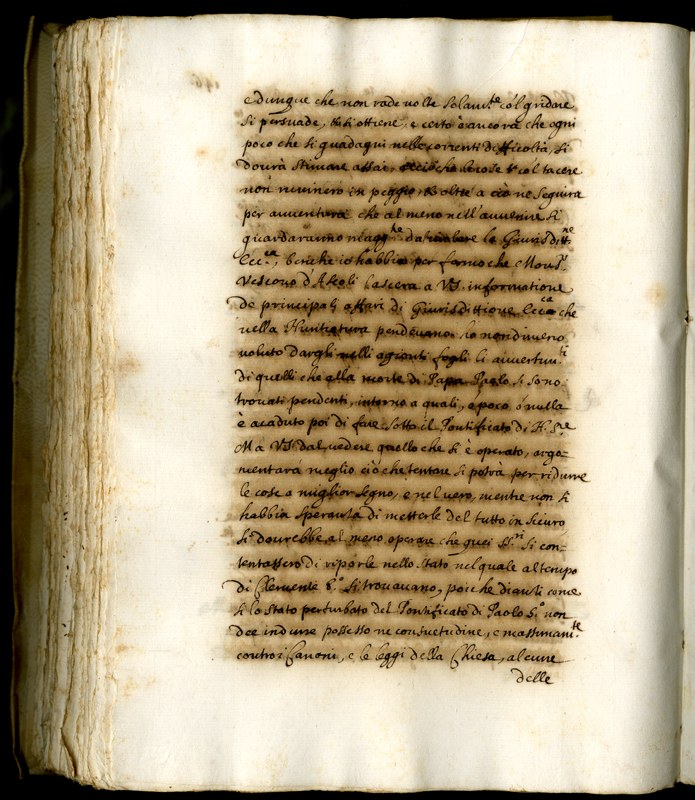 e dunque che non rade volte solam.te col gridare
si persuade, e si ottiene, e certo è ancora che ogni
poco che si guadagni nelle correnti difficoltà, si
dovrà stimare assai, acciò che le cose col tacere
non ruinino in peggio, oltre a ciò ne seguirà
per avventura che al meno nell'avvenire si
guardaranno di le Giurisditt.ne
Ecc.ca, benche io habbia per fermo che Mons.r
Vescovo d'Ascoli lascerà a V.S. informatione
de principali affari di Giurisdittione Ecc.ca che
nella Nuntiatura pendevano, ho nondimeno
voluto dargli negli aggionti fogli li avvertim.ti
di quelli che alla morte di Papa Paolo si sono
trovati pendenti, intorno a quali, ò poco ò nulla
è acaduto poi di fare sotto il Pontificato di N. S.re
Ma V.S. dal vedere quello che si è operato, argo=
mentarà meglio ciò che tentare si potrà per ridurre
le cose a miglior segno, e nel vero, mentre non si
habbia speranza di metterle del tutto in sicuro
si dovrebbe al meno operare che quei SS.ri si con=
tentassero di riporle nello stato nel quale al tempo
di Clemente 8.o si trovavano, poiche dianti come
si lo stato perturbato del Pontificato di Paolo 5.o non
dee indurre possesso ne consuetudine, e massimam.te
contro i Canoni, e le leggi della Chiesa, alcune
delle